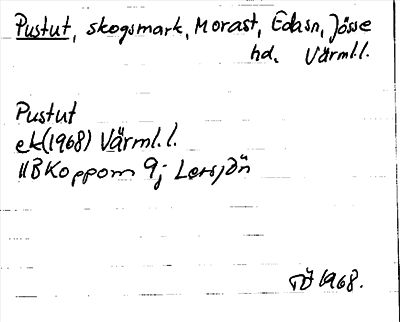 Pustut, skogsmark, Morast, Eda sn, Jösse
hd. Värml.l.
Pustut
ek (1968) Värml.l.
11B Koppom 9j Lersjön
1968.